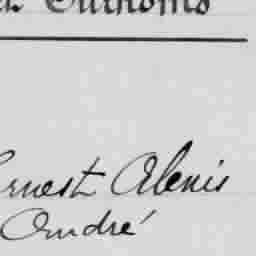 Surnoms
Ernest Alexis
André